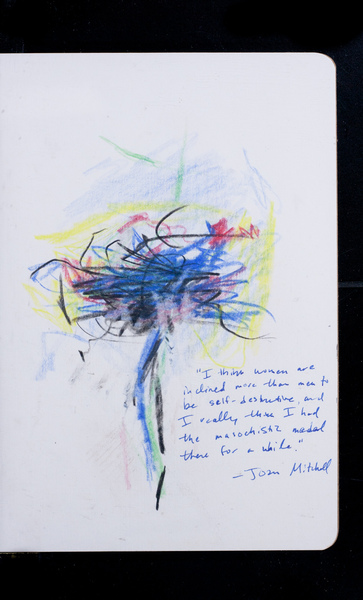 "I think women are
inclined more than men to
be self-destructive, and
I really think I had
the masochistic medal
there for a while."
– Joan Mitchell